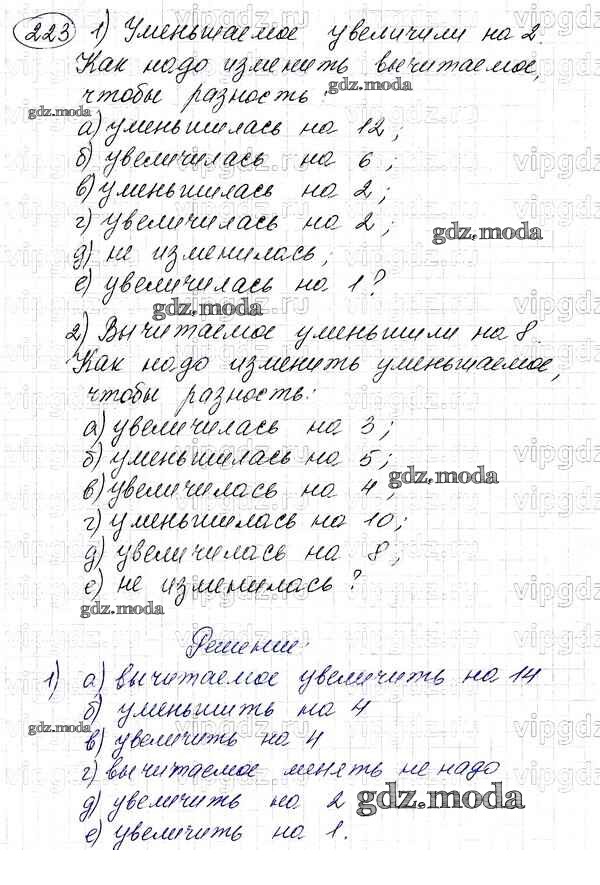 223 1) Уменьшаемое увеличили на 2.
Как надо изменить вычитаемое,
чтобы разность:
а) уменьшилась на 12;
б) увеличилась на 6;
в) уменьшилась на 2;
г) увеличилась на 2;
д) не изменилась;
е) увеличилась на 1?
2) Вычитаемое уменьшили на 8.
Как надо изменить уменьшаемое,
чтобы разность:
а) увеличилась на 3;
б) уменьшилась на 5;
в) увеличилась на 4;
г) уменьшилась на 10;
д) увеличилась на 8;
е) не изменилась?
Решение:
1) а) вычитаемое увеличить на 14
б) уменьшить на 4
в) увеличить на 4
г) вычитаемое менять не надо
д) увеличить на 2
е) увеличить на 1.
gdz.moda
gdz.moda
gdz.moda
gdz.moda
gdz.moda
gdz.moda
gdz.moda
gdz.moda
vipgdz.ru